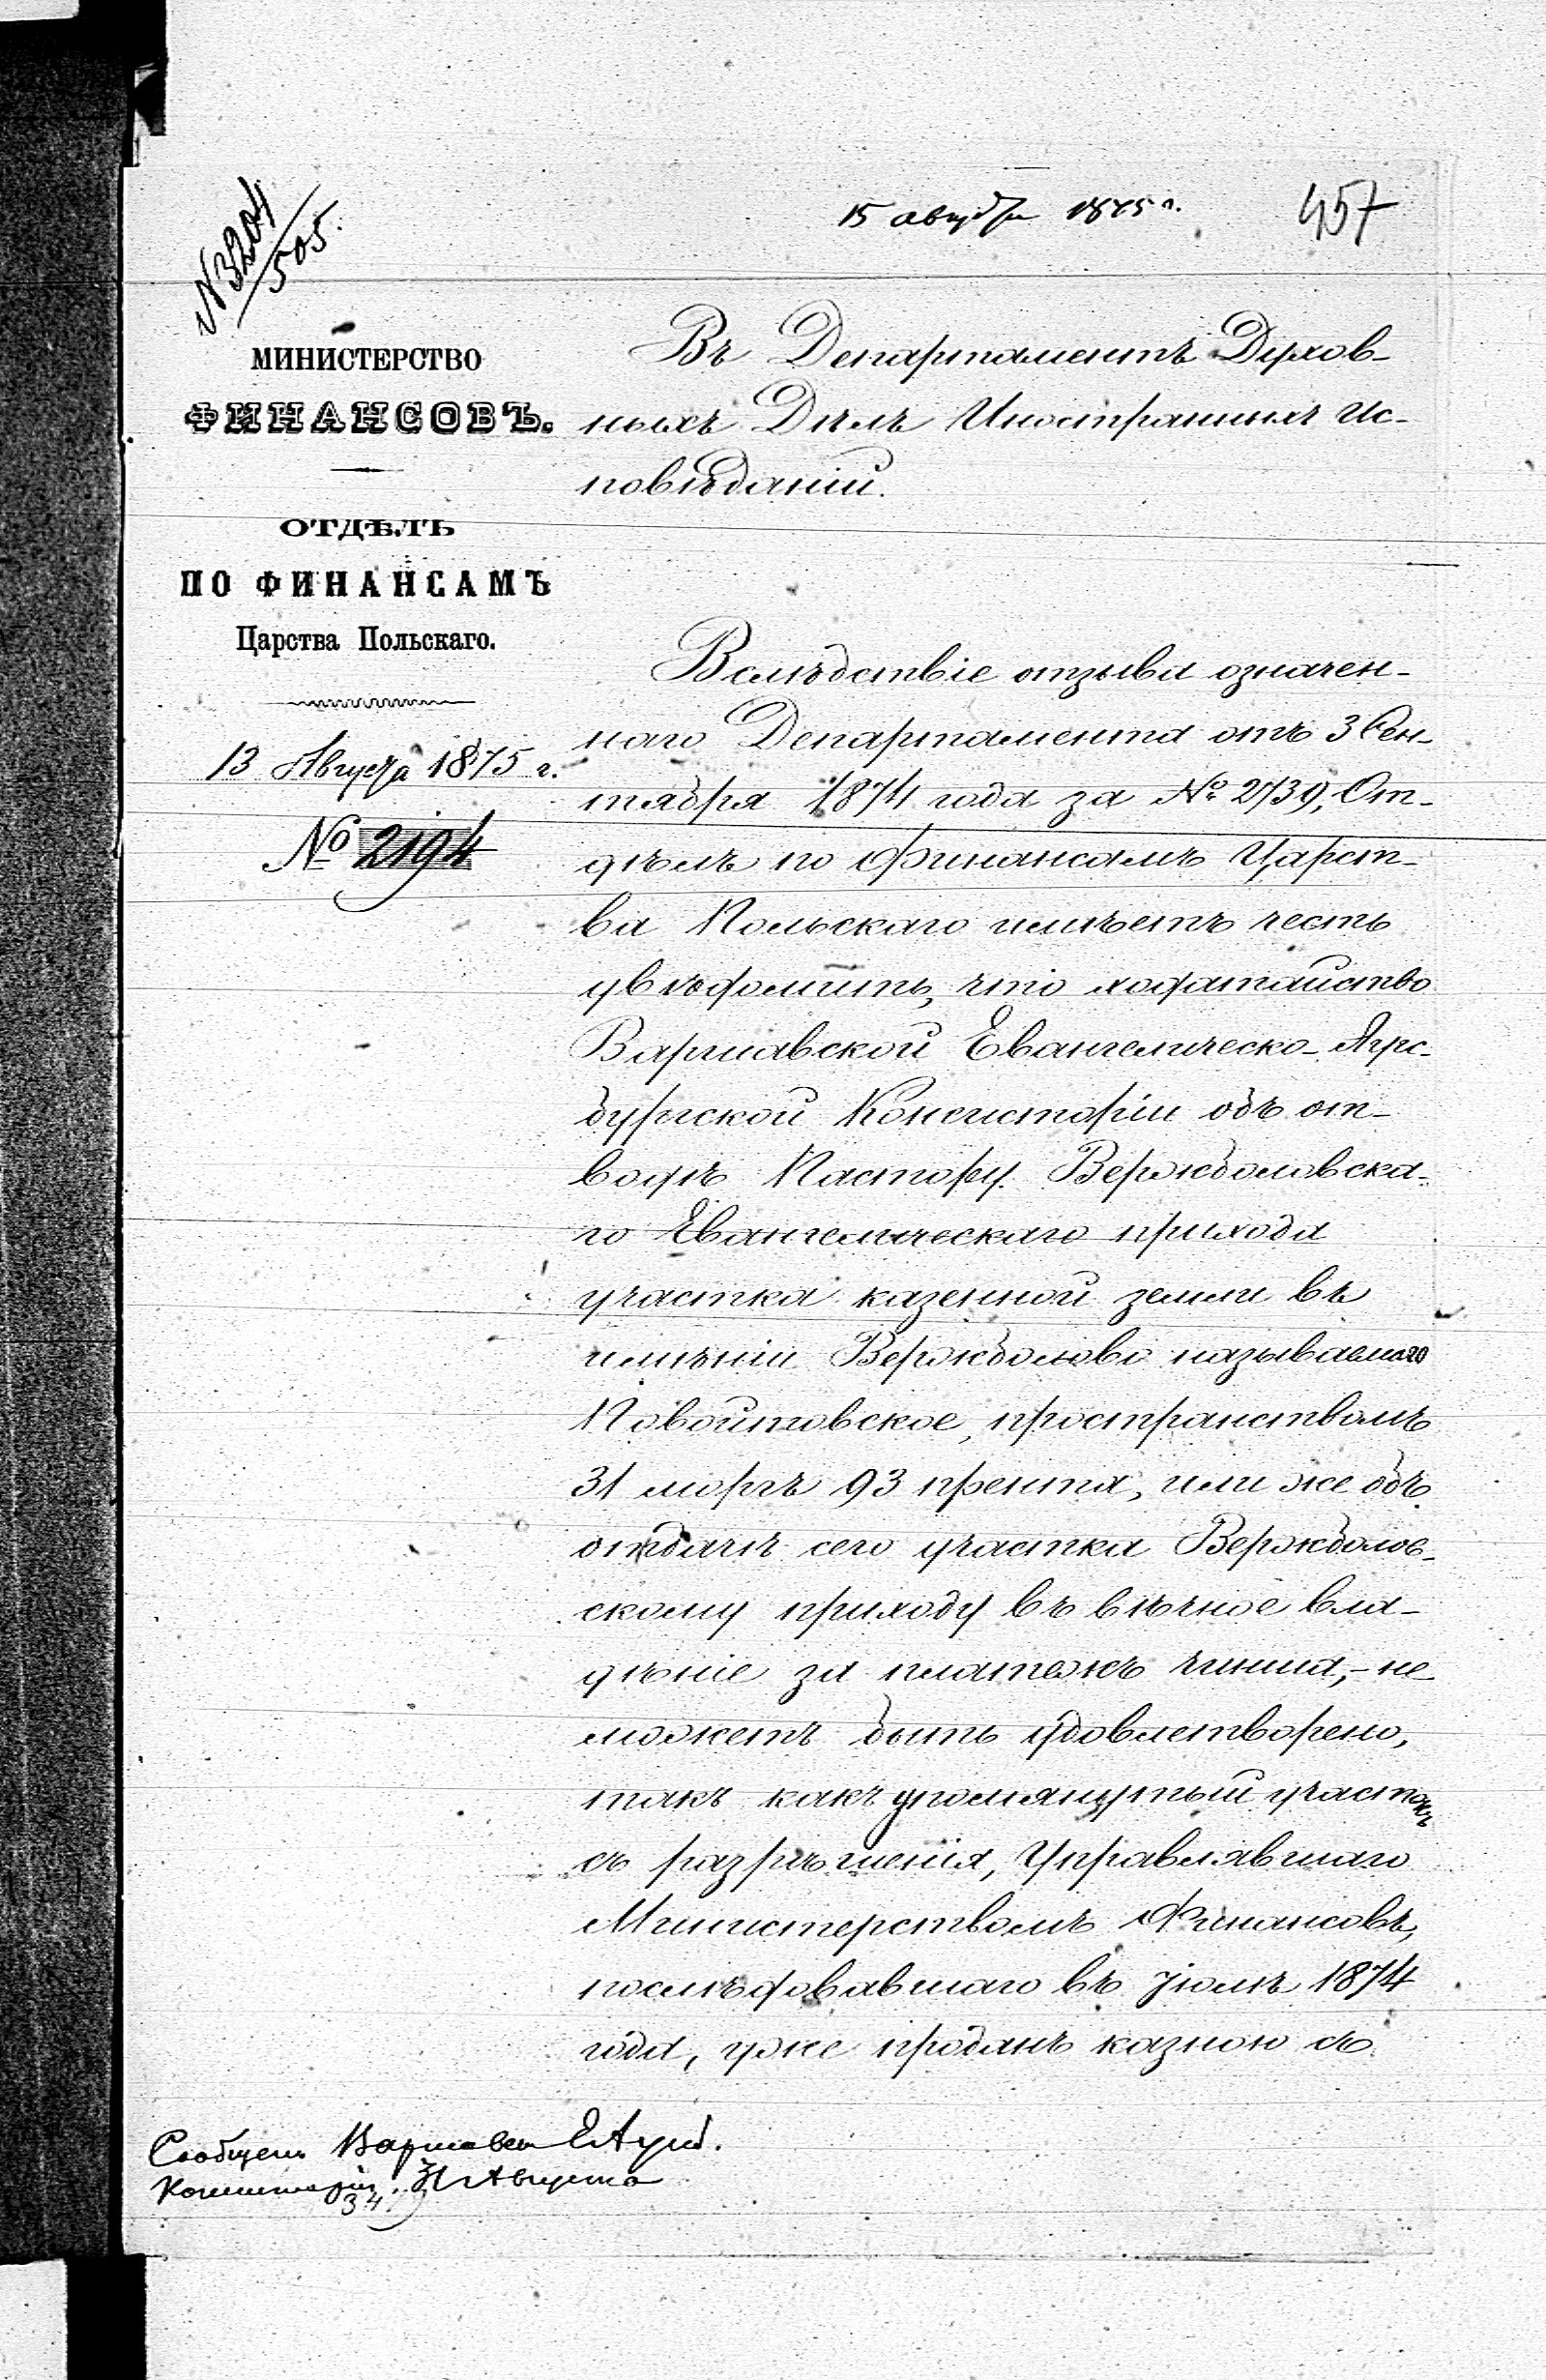 15 августа 1875 г.
457
N 3204/505.
МИНИСТЕРСТВО
ФИНАНСОВЪ.
ОТДѢЛЪ
ПО ФИНАНСАМЪ
Царства Польскаго.
13 Августа 1875 г.
№ 2194
Въ Департаментъ Духов-
ныхъ Дѣлъ Иностранныхъ Ис-
повѣданій.
Вслѣдствіе отзыва означен-
наго Департамента отъ 3 Сен-
тября 1874 года за № 2739, От-
дѣлъ по Финансамъ Царст-
ва Польскаго имѣетъ честь
увѣдомить, что ходатайство
Варшавской Евангелическо-Аугс-
бургской Консисторіи объ от-
водѣ Пастору Вержболовска-
го Евангелическаго прихода
участка казенной земли въ
имѣніи Вержболово называемаго
Повойтовское, пространствомъ
31 моргъ 93 прента, или же объ
отдачѣ сего участка Вержболов-
скому приходу въ вѣчное вла-
дѣніе за платежъ чинша,- не
можетъ быть удовлетворено,
такъ какъ упомянутый участокъ
съ разрѣшенія, Управлявшаго
Министерствомъ Финансовъ,
послѣдовавшаго въ Іюлѣ 1874
года, уже проданъ казною съ
Сообщено Варшавск ЕАугсб.
Консисторіи 31 Августа